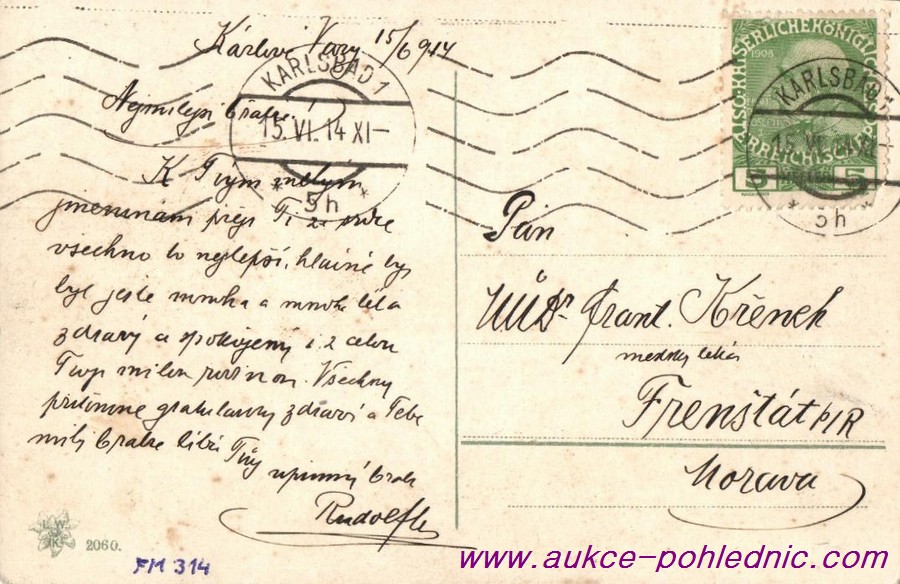 Karlovy Vary 15/6 914
KARLSBAD 1
15. VI. 14 XI-
* 5h *
Nejmilejsi bratře!
K Tvým milým
jmeninám přeji Ti ze srdce
všechno to nejlepší, hlavně bys
byl ještě mnoha a mnoha léta
zdravý a spokojený i z celou
Tvojí milou rodinou. Všechny
přítomné gratulanty zdraví a Tebe
milý bratře líbá
Tvůj upřímný bratr
Rudolf
KAISERLICHEKÖNIGLICHE
1908
ÖSTERREICHISCHE POST
5 HELLER 5
KARLSBAD
15. VI. 14 XI
* 5h *
Pán
MUDr Frant. Křenek
městský lékař
Frenštát p/R
Morava
L W
K
2060.
FM 314
www.aukce-pohlednic.com